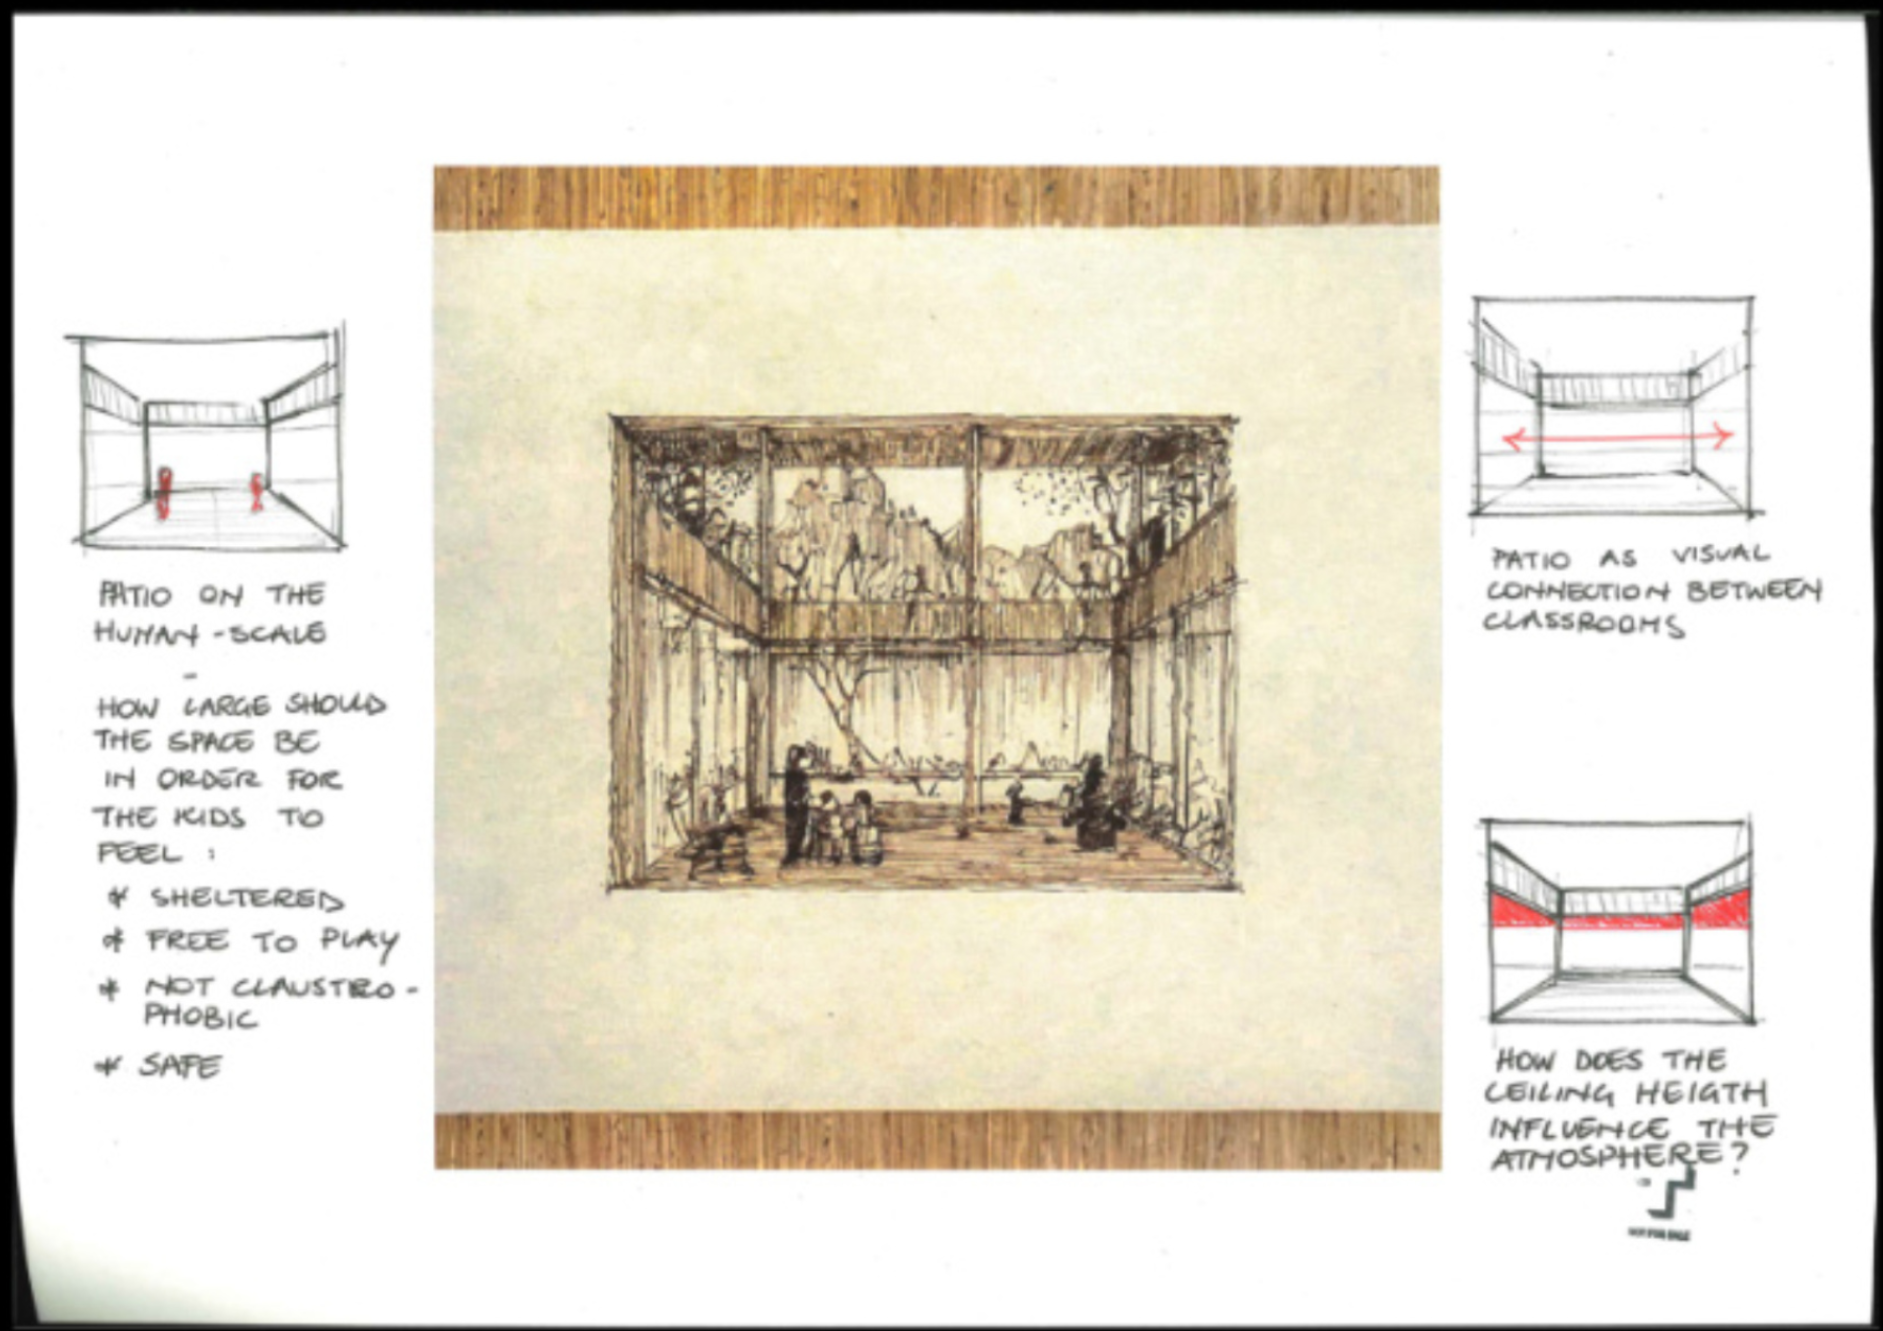 PATIO ON THE
HUMAN-SCALE
-
HOW LARGE SHOULD
THE SPACE BE
IN ORDER FOR
THE KIDS TO
FEEL :
* SHELTERED
* FREE TO PLAY
* NOT CLAUSTRO-
PHOBIC
* SAFE
PATIO AS VISUAL
CONNECTION BETWEEN
CLASSROOMS
HOW DOES THE
CEILING HEIGTH
INFLUENCE THE
ATMOSPHERE?